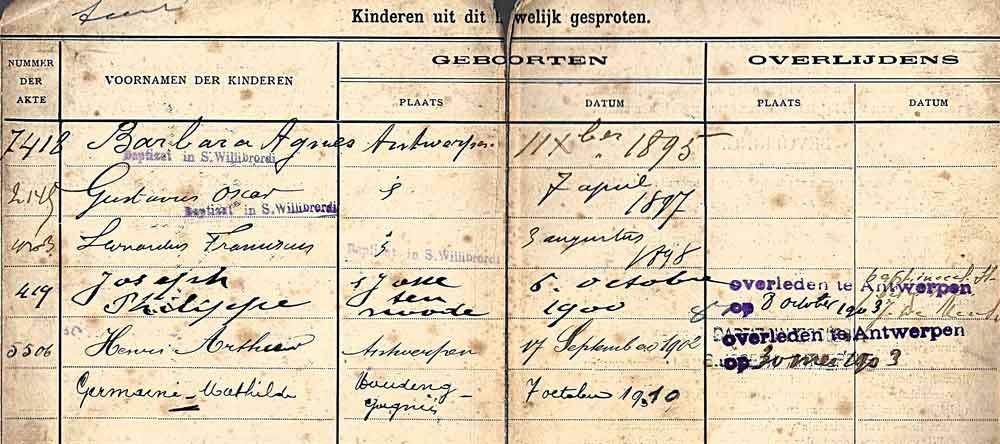 Kinderen uit dit huwelijk gesproten.
NUMMER DER AKTE
VOORNAMEN DER KINDEREN
GEBOORTEN
OVERLIJDENS
PLAATS
DATUM
PLAATS
DATUM
7418 Barbara Agnes Antwerpen 11 Xber 1895
Baptizat in S. Willibrordi
Gustavus Oscar 7 april 1897
Baptizat in S. Willibrordi
Leonardus Franciscus 3 augustus 1898
Baptizat in S. Willibrordi
419 Joseph Philippe St Josse ten noode 5 octobre 1900
overleden te Antwerpen
op 8 october 1903
5506 Henri Arthur Antwerpen 17 September 1902
overleden te Antwerpen
op 30 mei 1903
Germaine - Mathilde Houdeng - Goegnies 7 october 1910